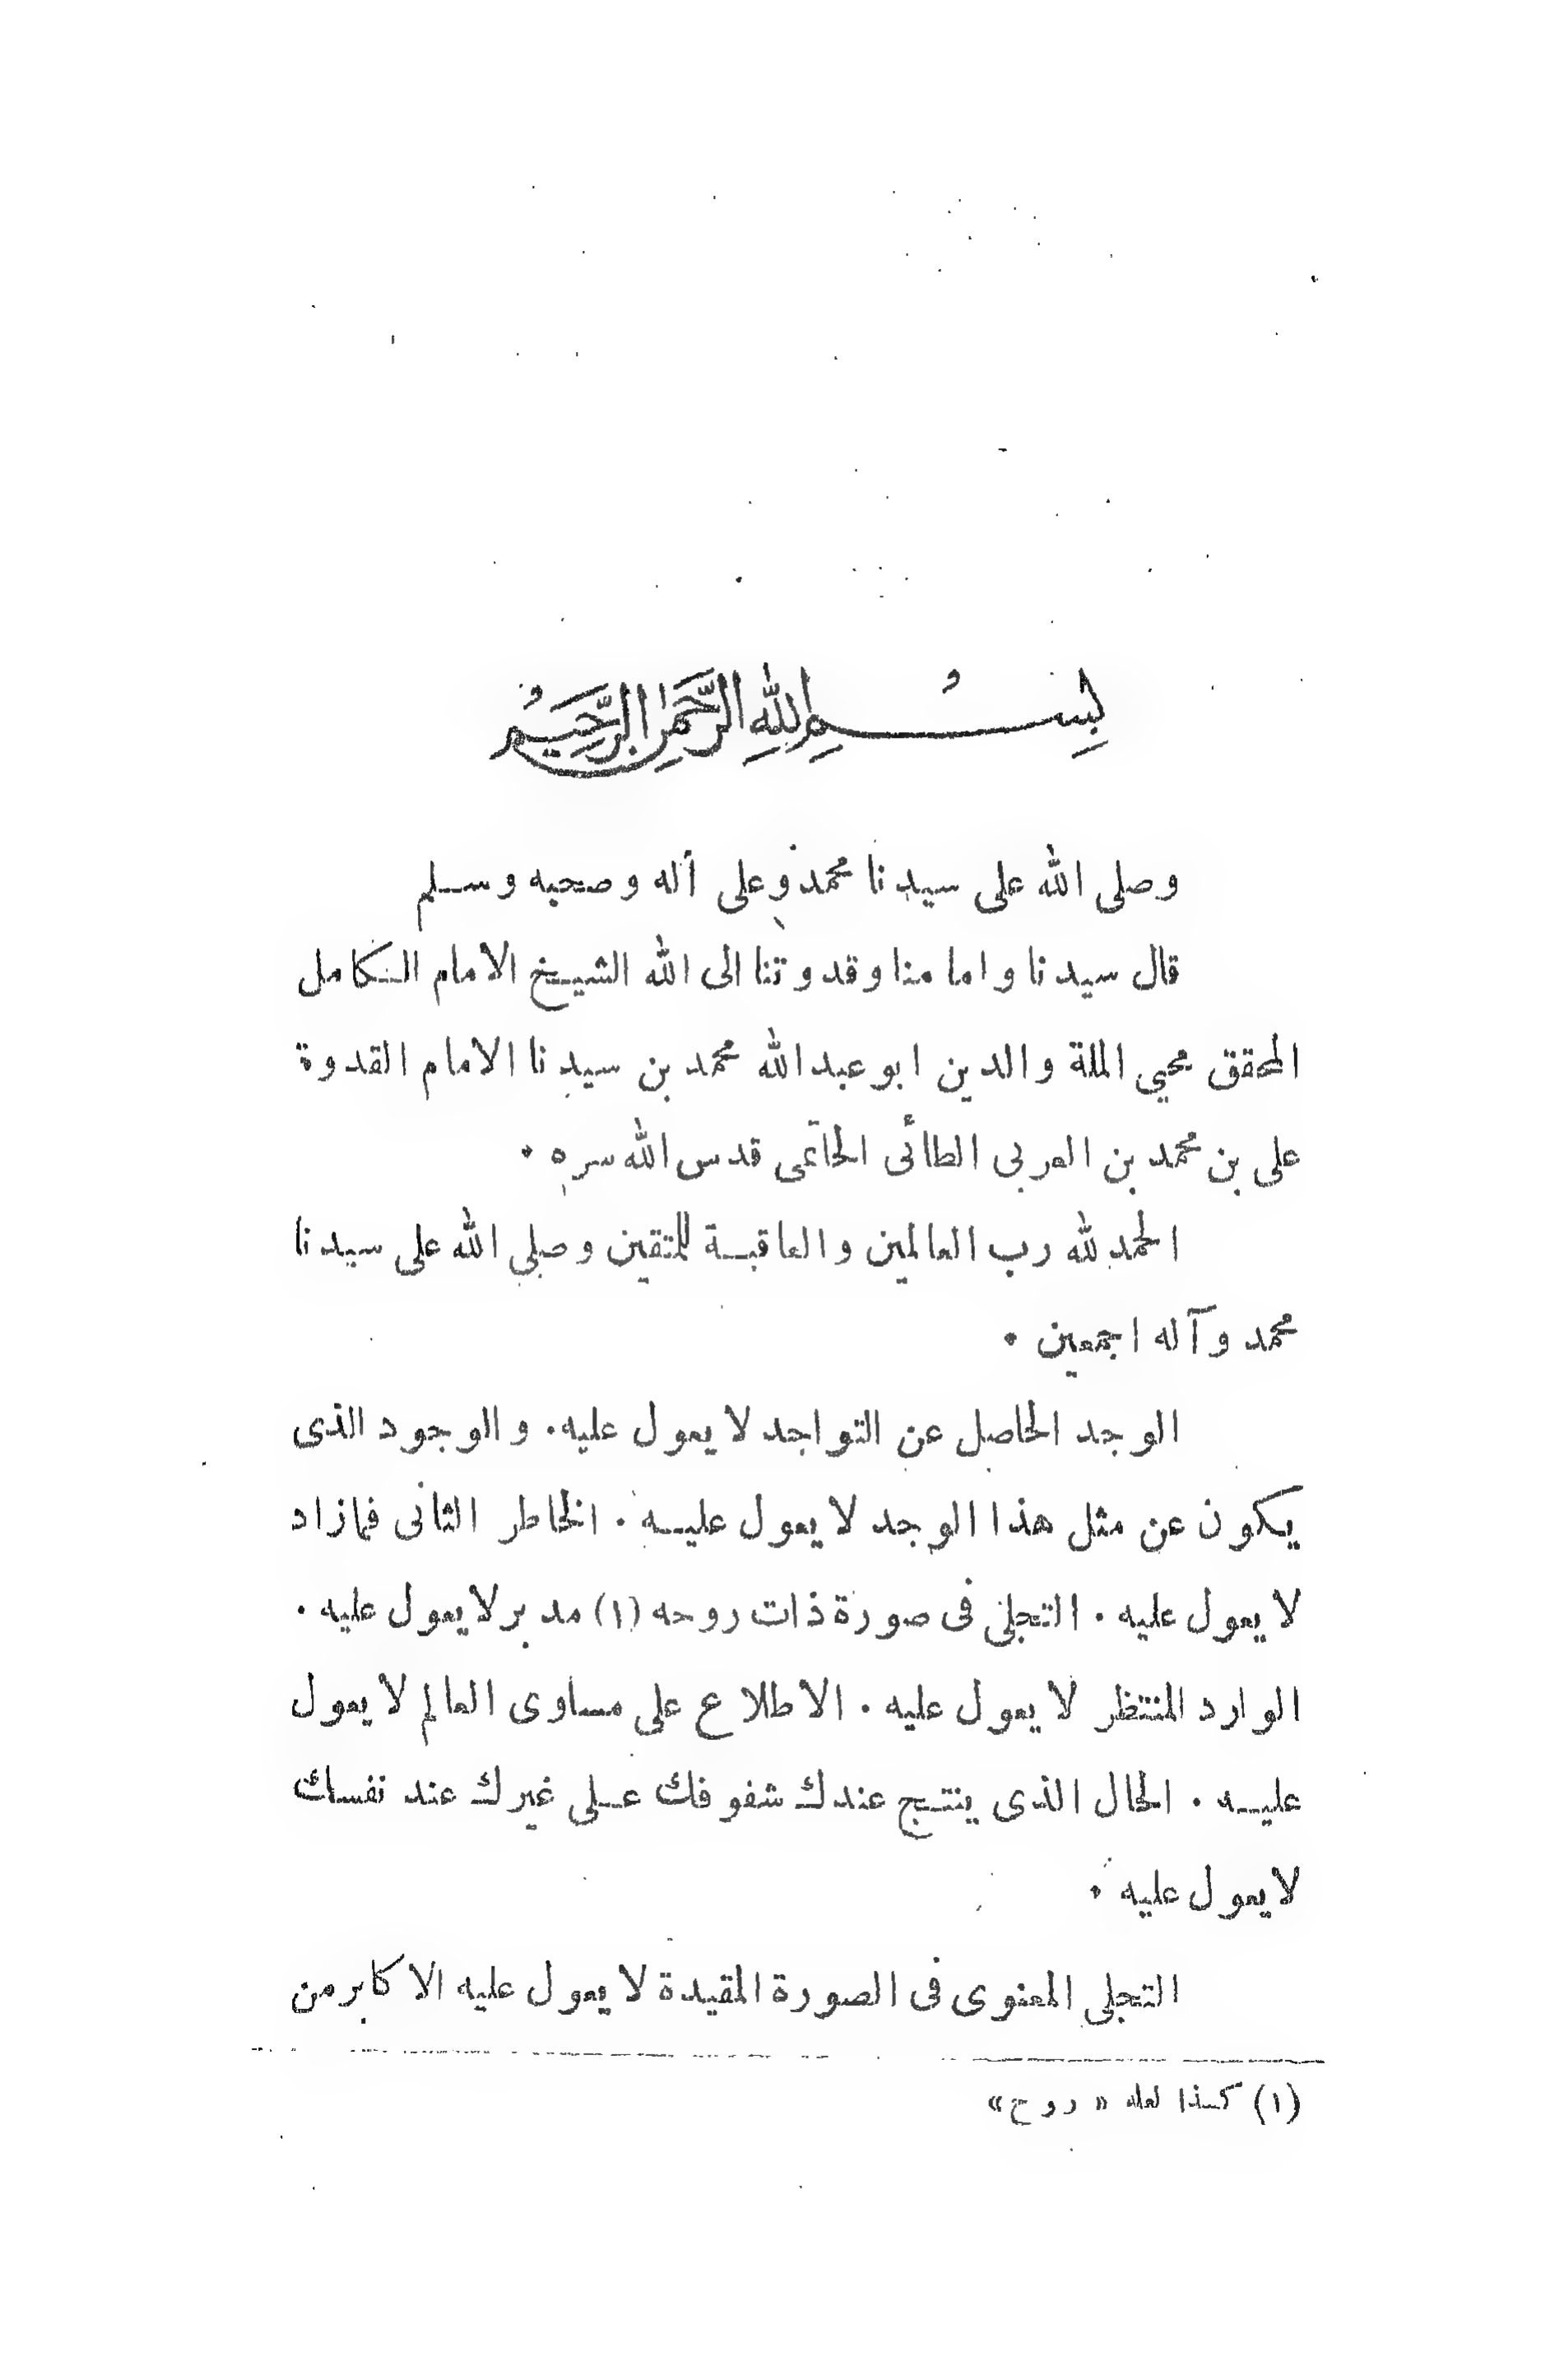 بِسْمِ اللهِ الرَّحْمٰنِ الرَّحِيْمِ
وصلى الله على سيدنا محمد وعلى آله وصحبه وسلم
قال سيدنا وامامنا وقدوتنا الى الله الشيخ الامام الكامل
المحقق محيي الملة والدين ابو عبد الله محمد بن سيدنا الامام القدوة
على بن محمد بن العربى الطائى الحاتمى قدس الله سره ٠
الحمد لله رب العالمين والعاقبة للمتقين وصلى الله على سيدنا
محمد وآله اجمعين ٠
الوجد الحاصل عن التواجد لا يعول عليه٠ والوجود الذى
يكون عن مثل هذا الوجد لا يعول عليه ٠ الخاطر الثانى فمازاد
لا يعول عليه ٠ التجلى فى صورة ذات روحه (١) مدبر لا يعول عليه ٠
الوارد المنتظر لا يعول عليه ٠ الاطلاع على مساوى العالم لا يعول
عليه ٠ الحال الذى ينتج عندك شفوفك على غيرك عند نفسك
لا يعول عليه ٠
التجلى المعنوى فى الصورة المقيدة لا يعول عليه الاكابر من
(١) كذا لعله «روح»